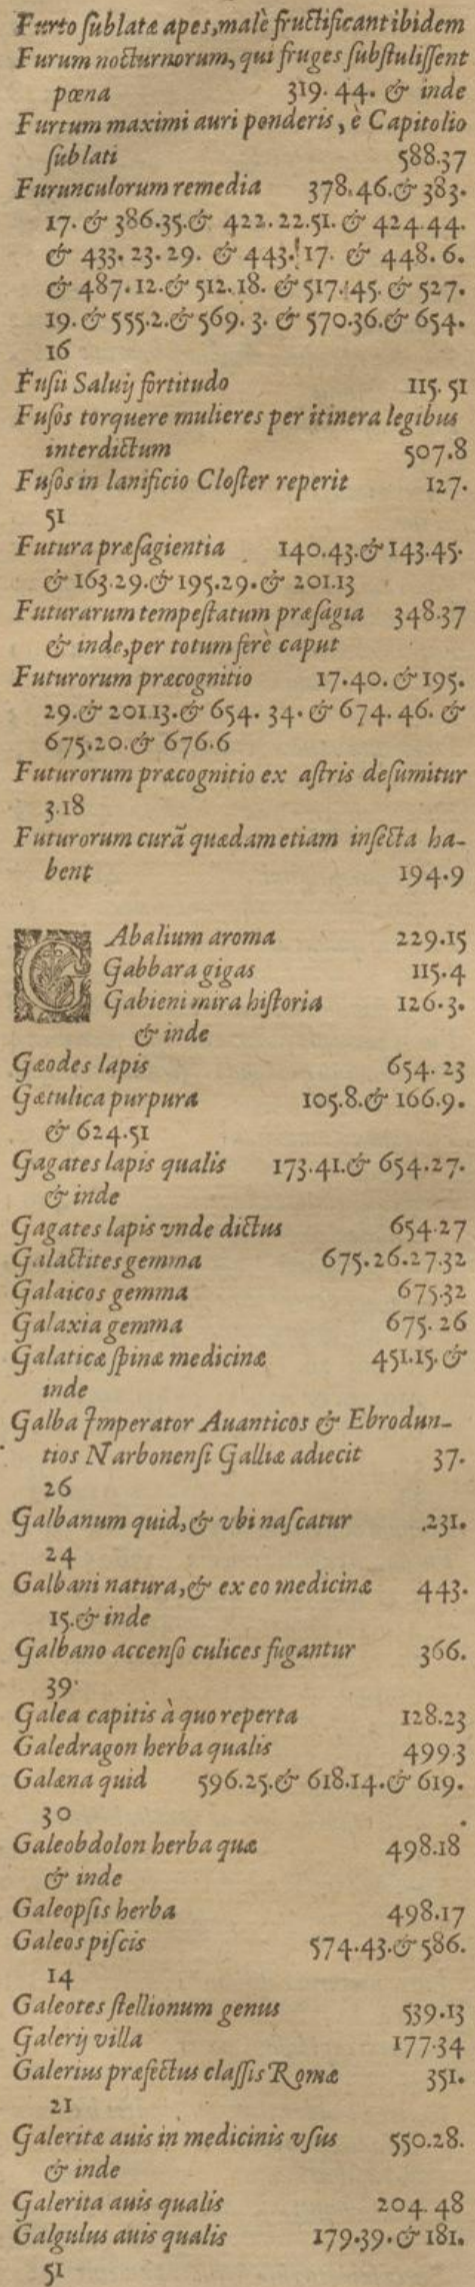 Furto ſublatæ apes, malè fructificant ibidem
Furum nocturnorum, qui fruges ſubſtuliſſent
pœna 319. 44. & inde
Furtum maximi auri ponderis, è Capitolio
ſublati 588.37
Furunculorum remedia 378.46.& 383.
17. & 386.35.& 422.22.51. & 424.44.
& 433. 23. 29. & 443. 17. & 448. 6.
& 487.12.& 512.18. & 517.45. & 527.
19.& 555.2.& 569. 3. & 570.36.& 654.
16
Fuſii Saluij fortitudo 115. 51
Fuſos torquere mulieres per itinera legibus
interdictum 507.8
Fuſos in lanificio Cloſter reperit 127.
51
Futura præſagientia 140.43.& 143.45.
& 163.29.& 195.29.& 201.13
Futurarum tempeſtatum præſagia 348.37
& inde, per totum ferè caput
Futurorum præcognitio 17.40. & 195.
29.& 201.13.& 654. 34. & 674. 46. &
675.20.& 676.6
Futurorum præcognitio ex aſtris deſumitur
3.18
Futurorum curã quædam etiam inſecta ha-
bent 194.9
GAbalium aroma 229.15
Gabbara gigas 115.4
Gabieni mira hiſtoria 126.3.
& inde
Gæodes lapis 654. 23
Gætulica purpura 105.8.& 166.9.
& 624.51
Gagates lapis qualis 173.41.& 654.27.
& inde
Gagates lapis vnde dictus 654.27
Galactites gemma 675.26.27.32
Galaicos gemma 675.32
Galaxia gemma 675. 26
Galaticæ ſpinæ medicinæ 451.15.&
inde
Galba Imperator Auanticos & Ebrodun-
tios Narbonenſi Galliæ adiecit 37.
26
Galbanum quid, & vbi naſcatur .231.
24
Galbani natura, & ex eo medicinæ 443.
15.& inde
Galbano accenſo culices fugantur 366.
39
Galea capitis à quo reperta 128.23
Galedragon herba qualis 499.3
Galæna quid 596.25.& 618.14.& 619.
30
Galeobdolon herba quæ 498.18
& inde
Galeopſis herba 498.17
Galeos piſcis 574.43.& 586.
14
Galeotes ſtellionum genus 539.13
Galerij villa 177.34
Galerius præfectus claſſis Romæ 351.
21
Galeritæ auis in medicinis vſus 550.28.
& inde
Galerita auis qualis 204. 48
Galgulus auis qualis 179.39.& 181.
51